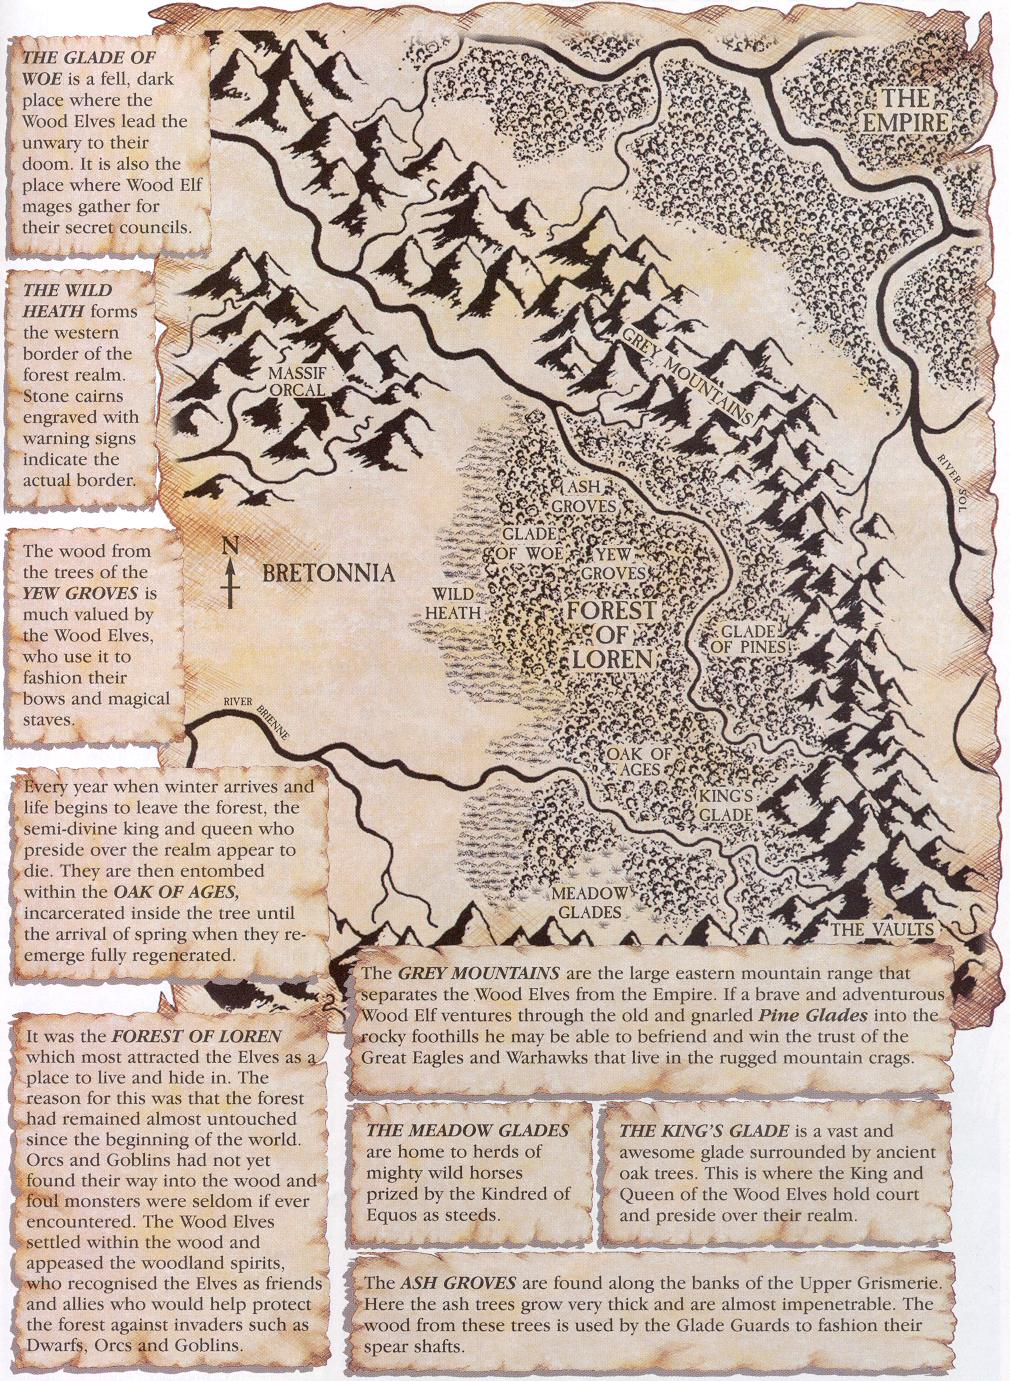 THE GLADE OF
WOE is a fell, dark
place where the
Wood Elves lead the
unwary to their
doom. It is also the
place where Wood Elf
mages gather for
their secret councils.
THE WILD
HEATH forms
the western
border of the
forest realm.
Stone cairns
engraved with
warning signs
indicate the
actual border.
The wood from
the trees of the
YEW GROVES is
much valued by
the Wood Elves,
who use it to
fashion their
bows and magical
staves.
Every year when winter arrives and
life begins to leave the forest, the
semi-divine king and queen who
preside over the realm appear to
die. They are then entombed
within the OAK OF AGES,
incarcerated inside the tree until
the arrival of spring when they re-
emerge fully regenerated.
It was the FOREST OF LOREN
which most attracted the Elves as a
place to live and hide in. The
reason for this was that the forest
had remained almost untouched
since the beginning of the world.
Orcs and Goblins had not yet
found their way into the wood and
foul monsters were seldom if ever
encountered. The Wood Elves
settled within the wood and
appeased the woodland spirits,
who recognised the Elves as friends
and allies who would help protect
the forest against invaders such as
Dwarfs, Orcs and Goblins.
THE
EMPIRE
GREY MOUNTAINS
MASSIF
ORCAL
RIVER SOL
ASH
GROVES
GLADE
OF WOE
YEW
GROVES
N
BRETONNIA
WILD
HEATH
FOREST
OF
LOREN
GLADE
OF PINES
RIVER BRIENNE
OAK OF
AGES
KING'S
GLADE
MEADOW
GLADES
THE VAULTS
The GREY MOUNTAINS are the large eastern mountain range that
separates the Wood Elves from the Empire. If a brave and adventurous
Wood Elf ventures through the old and gnarled Pine Glades into the
rocky foothills he may be able to befriend and win the trust of the
Great Eagles and Warhawks that live in the rugged mountain crags.
THE MEADOW GLADES
are home to herds of
mighty wild horses
prized by the Kindred of
Equos as steeds.
THE KING'S GLADE is a vast and
awesome glade surrounded by ancient
oak trees. This is where the King and
Queen of the Wood Elves hold court
and preside over their realm.
The ASH GROVES are found along the banks of the Upper Grismerie.
Here the ash trees grow very thick and are almost impenetrable. The
wood from these trees is used by the Glade Guards to fashion their
spear shafts.